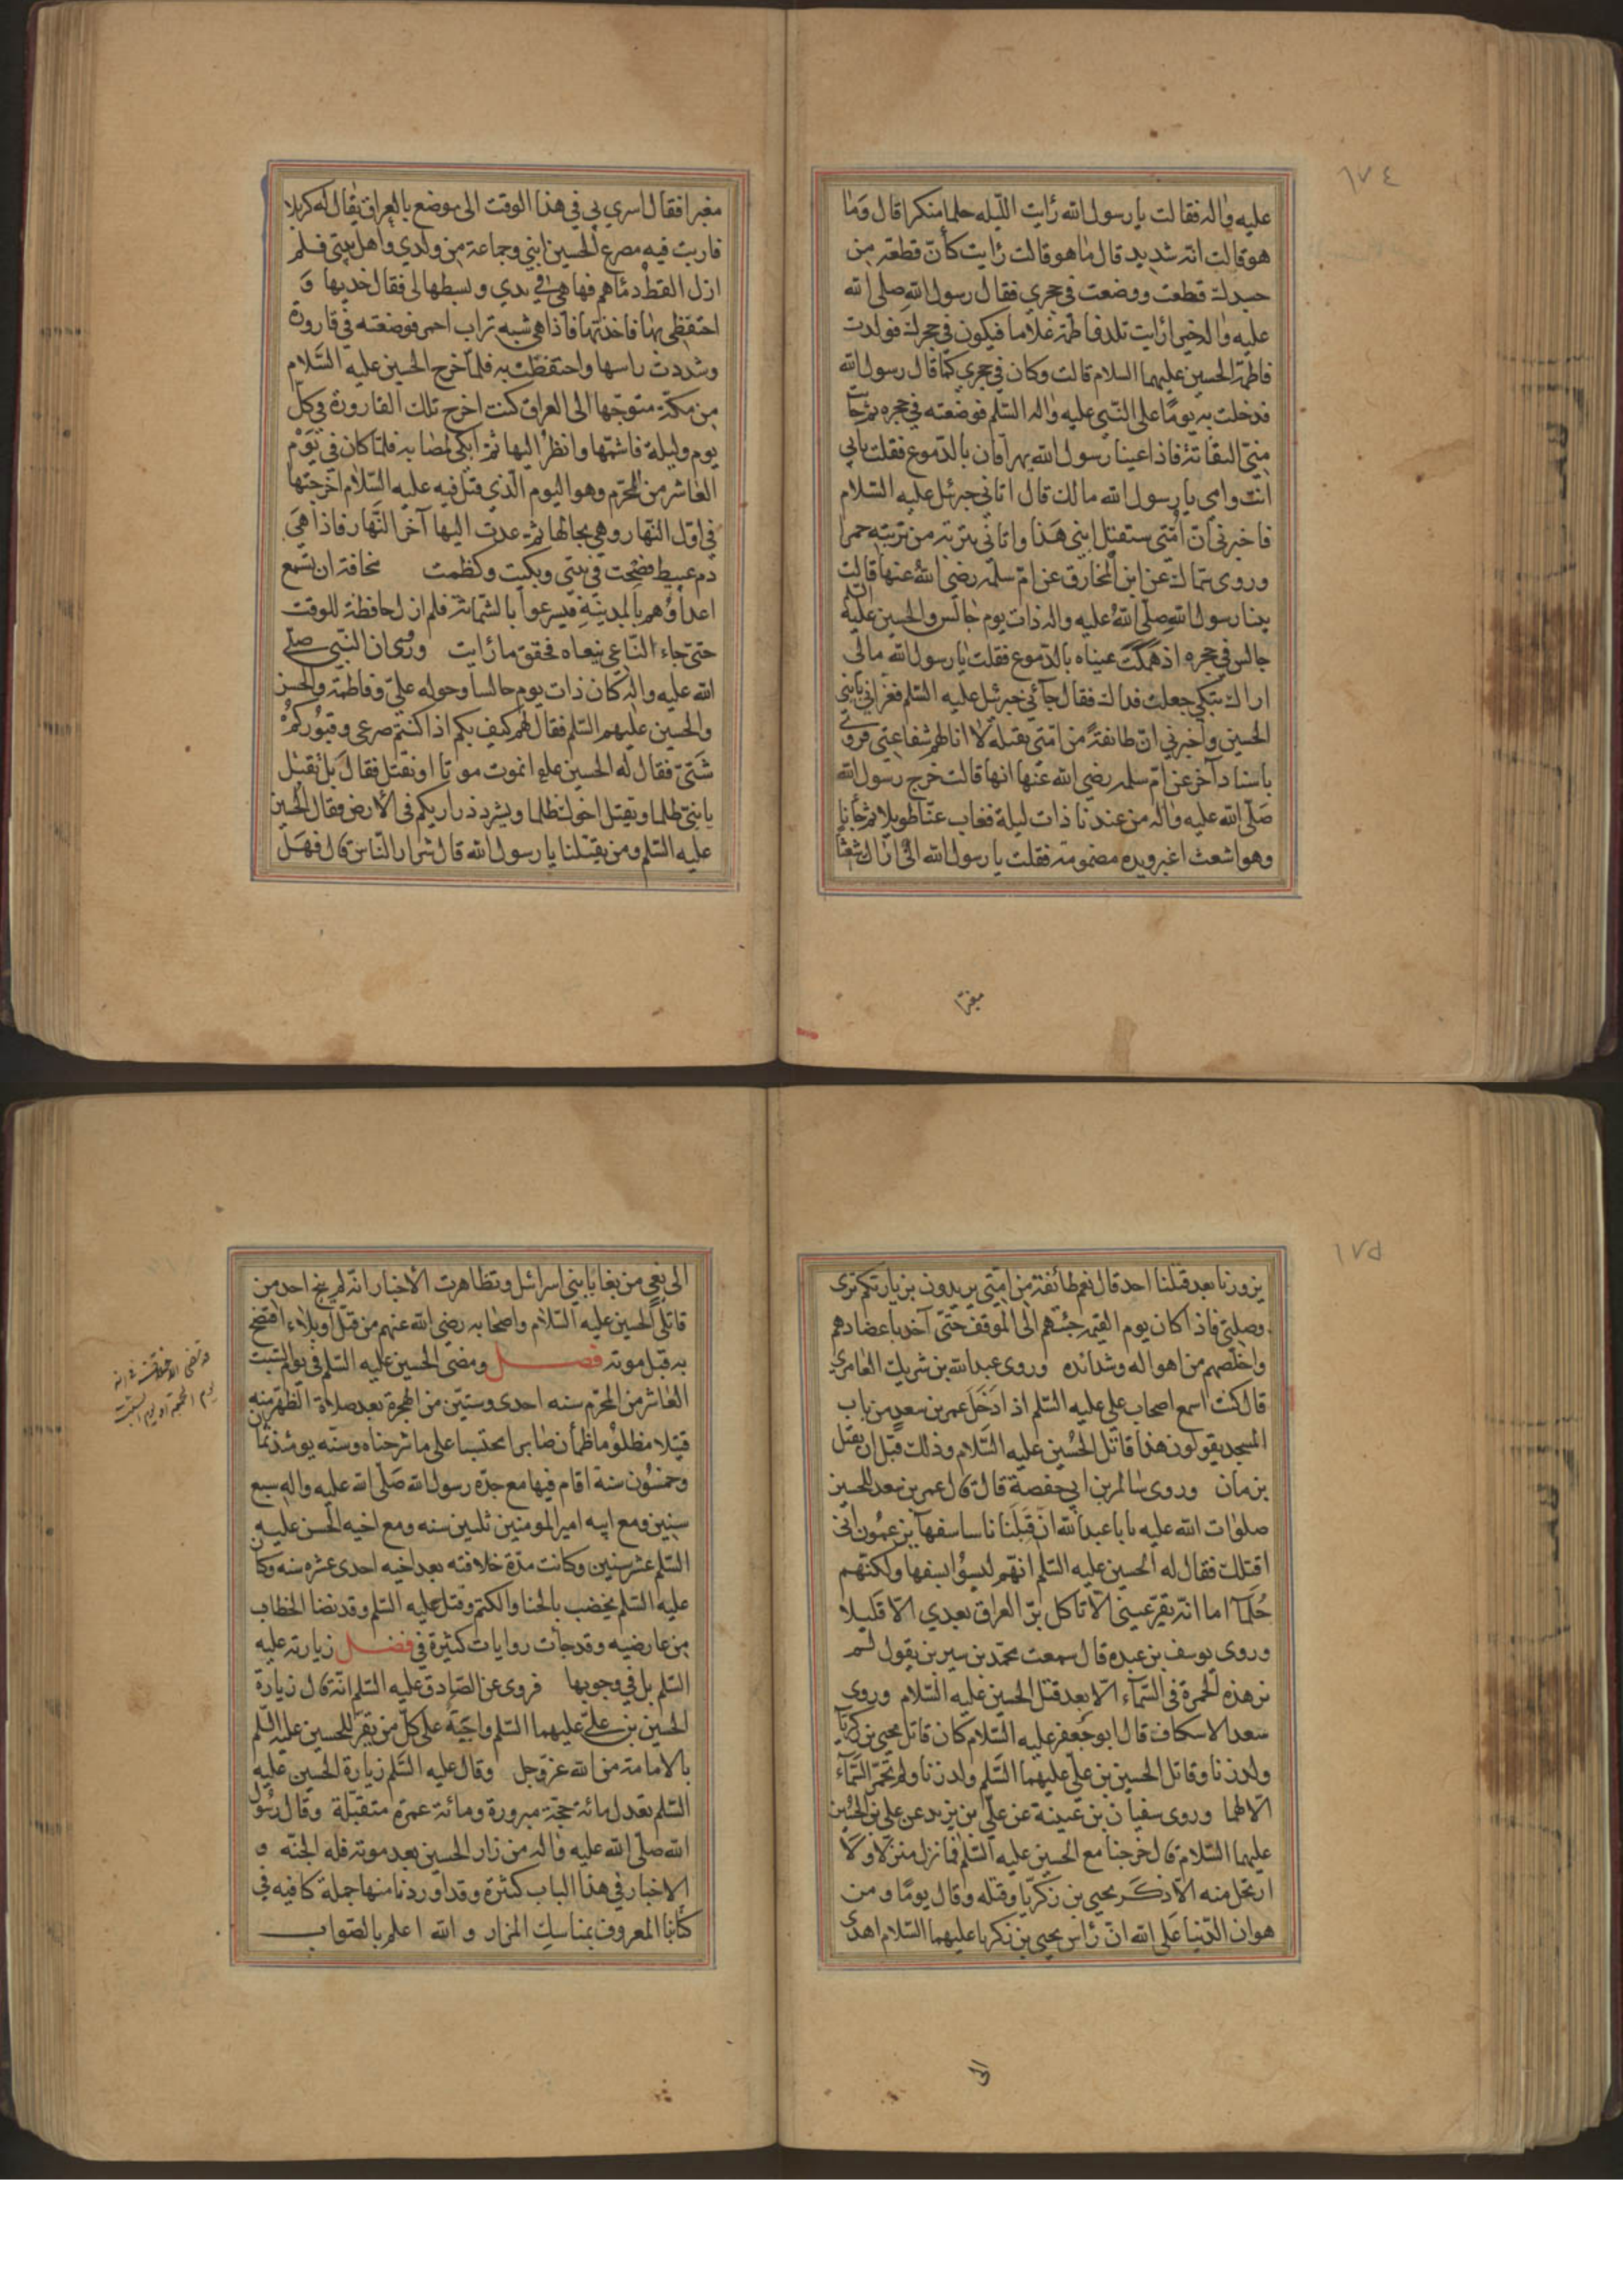 ١٧٤
عليه واله فقالت يا رسول الله رايت الليله حلما منكرا قال وما
هو قالت انه شديد قال ما هو قالت رايت كأن قطعة من
جسدك قطعت ووضعت في حجري فقال رسول الله صلى الله
عليه واله خيرا رايت تلد فاطمة غلاما فيكون في حجرك فولدت
فاطمة الحسين عليهما السلام قالت وكان في حجري كما قال رسول الله
فدخلت به يوما على النبي عليه واله السلم فوضعته في حجره ثم حانت
مني التفاتة فاذا عينا رسول الله يهراقان بالدموع فقلت بابي
انت وامي يا رسول الله مالك قال اتاني جبرئل عليه السلام
فاخبرني ان امتي ستقتل ابني هذا واتاني بتربة من تربته حمرا
وروى سماك عن ابن المخارق عن ام سلمه رضي الله عنها قالت
بينا رسول الله صلى الله عليه واله ذات يوم جالس والحسين عليه السلم
جالس في حجره اذ هملت عيناه بالدموع فقلت يا رسول الله مالى
اراك تبكي جعلت فداك فقال جآئني جبرئيل عليه السلم فعزاني بابني
الحسين واخبرني ان طائفة من امتي يقتله لا انا لهم شفاعتي وروي
باسناد آخر عن ام سلمه رضي الله عنها انها قالت خرج رسول الله
صلى الله عليه واله من عندنا ذات ليلة فغاب عنا طويلا ثم جأنا
وهو اشعث اغبر ويده مضمومة فقلت يا رسول الله مالى اراك شعثا
مغبرا
مغبرا فقال اسري بي في هذا الوقت الى موضع بالعراق يقال له كربلا
فاريت فيه مصرع الحسين ابني وجماعة من ولدي واهل بيتي فلم
ازل القط دمائهم فها هي في يدي وبسطها لى فقال خذيها و
احتفظي بها فاخذتها فاذا هي شبه تراب احمر فوضعته في قارورة
وشددت راسها واحتفظت به فلما خرج الحسين عليه السلام
من مكة متوجها الى العراق كنت اخرج تلك القارورة في كل
يوم وليلة فاشمها وانظر اليها ثم ابكي لمصابه فلما كان في يوم
العاشر من المحرم وهو اليوم الذي قتل فيه عليه السلام اخرجتها
في اول النهار وهي بحالها ثم عدت اليها آخر النهار فاذا هي
دم عبيط فضجت في بيتي وبكيت وكظمت مخافة ان تسمع
اعداؤهم بالمدينة فيسرعوا بالشماتة فلم ازل حافظة للوقت
حتى جاء الناعي ينعاه فحقق ما رايت وروى ان النبي صلى
الله عليه واله كان ذات يوم جالسا وحوله علي وفاطمة والحسن
والحسين عليهم السلم فقال لهم كيف بكم اذا كنتم صرعى وقبوركم
شتى فقال له الحسين عليه انموت موتا او نقتل فقال بل تقتل
يا بني ظلما ويقتل اخوك ظلما ويشرد ذراريكم في الارض فقال الحسين
عليه السلم ومن يقتلنا يا رسول الله قال شرار الناس قال فهل
١٧٥
يزورنا بعد قتلنا احد قال نعم طائفة من امتي يريدون بزيارتكم بري
وصلتي فاذا كان يوم القيمه جئتهم الى الموقف حتى آخذ باعضادهم
واخلصهم من اهواله وشدائده وروى عبد الله بن شريك العامري
قال كنت اسمع اصحاب علي عليه السلم اذا دخل عمر بن سعد من باب
المسجد يقولون هذا قاتل الحسين عليه السلام وذلك قبل ان يقتل
بزمان وروى سالم بن ابي حفصة قال قال عمر بن سعد للحسين
صلوات الله عليه يا با عبد الله ان قبلنا ناسا سفهآ يزعمون اني
اقتلك فقال له الحسين عليه السلم انهم ليسوا بسفها ولكنهم
حلمآ اما انه يقر عيني الا تاكل بر العراق بعدي الا قليلا
وروى يوسف بن عبده قال سمعت محمد بن سيرين يقول لم
نر هذه الحمرة في السمآء الا بعد قتل الحسين عليه السلام وروى
سعد الاسكاف قال ابو جعفر عليه السلام كان قاتل يحيى بن زكريا
ولد زنا وقاتل الحسين بن علي عليهما السلم ولد زنا ولم تحمر السمآء
الا لهما وروى سفيان بن عيينة عن علي بن يزيد عن علي بن الحسين
عليهما السلام قال خرجنا مع الحسين عليه السلم فما نزل منزلا ولا
ارتحل منه الا ذكر يحيى بن زكريا وقتله وقال يوما ومن
هوان الدنيا على الله ان رأس يحيى بن زكريا عليهما السلام اهدى
الى
الى بغي من بغايا بني اسرائل وتظاهرت الاخبار انه لم ينج احد من
قاتلي الحسين عليه السلام واصحابه رضي الله عنهم من قتل او بلاء افتضح
به قبل موته فصل ومضى الحسين عليه السلم في يوم السبت
العاشر من المحرم سنه احدى وستين من الهجرة بعد صلاة الظهر منه
قتيلا مظلوما ظمأن صابرا محتسبا على ما شرحناه وسنه يومئذ ثمان
وخمسون سنة اقام فيها مع جده رسول الله صلى الله عليه واله سبع
سنين ومع ابيه امير المومنين ثلثين سنه ومع اخيه الحسن عليه
السلم عشر سنين وكانت مدة خلافته بعد اخيه احدى عشره سنه وكان
عليه السلم يخضب بالحنا والكتم وقتل عليه السلم وقد نصا الخضاب
من عارضيه وقد جأت روايات كثيرة في فضل زيارته عليه
السلم بل في وجوبها فروى عن الصادق عليه السلم انه قال زيارة
الحسين بن علي عليهما السلم واجبة على كل من يقر للحسين عليه السلم
بالامامة من الله عز وجل وقال عليه السلم زيارة الحسين عليه
السلم تعدل مائة حجة مبرورة ومائة عمرة متقبلة وقال رسول
الله صلى الله عليه واله من زار الحسين بعد موته فله الجنه و
الاخبار في هذا الباب كثيرة وقد اوردنا منها جملة كافيه في
كتابنا المعروف بمناسك المزار والله اعلم بالصواب